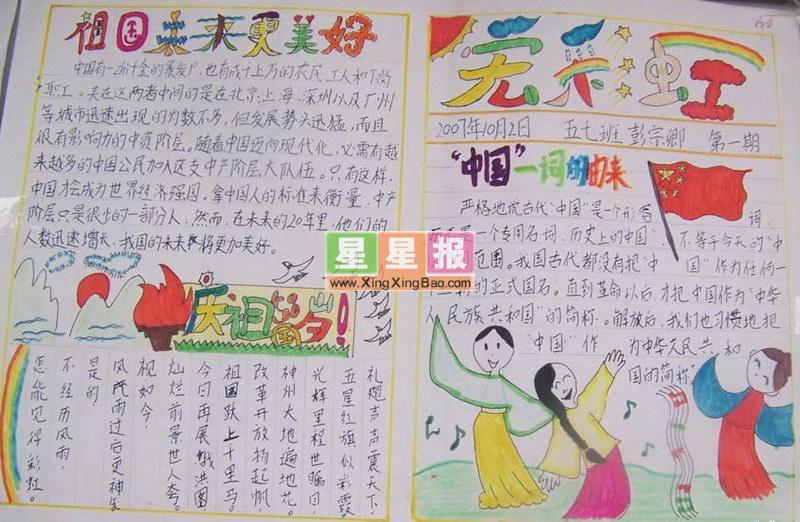 祖国未来更美好
中国有一部计金的暴发户,也有成千上万的农民、工人和下岗
职工。夹在这两者中间的是在北京、上海、深圳以及广州
等城市迅速出现的为数不多,但发展势头迅猛,而且
很有影响力的中资阶层。随着中国迈向现代化,必需有越
来越多的中国公民加入这支中产阶层大队伍。只有这样,
中国才会成为世界经济强国。拿中国人的标准来衡量,中产
阶层只是很少的一部分人,然而,在未来的20年里,他们的
人数迅速增长,我国的未来将更加美好。
庆祖国岁!
礼炮声声震天下,
五星红旗似彩霞
光辉里程世瞩目,
神州大地遍地花。
改革开放扬起帆
祖国跃上千里马。
今日再展蛾洪图
灿烂前景世人夸。
视如今,
风风雨过后更神
是的!
不经历风雨,
怎能见得彩虹。
天虹
2007年10月2日 五七班 彭宗卿 第一期
“中国”一词的由来
严格地说古代“中国”是一个形容词,
一个专用名词,历史上的“中国”不等于今天的“中
范围。我国古代都没有把“中国”作为任何一
的正式国名。直到革命以后,才把中国作为“中华
人民族共和国”的简称。解放后,我们也习惯地把
“中国”作为中华人民共和
国的简称”
星星报
www.XingXingBao.com